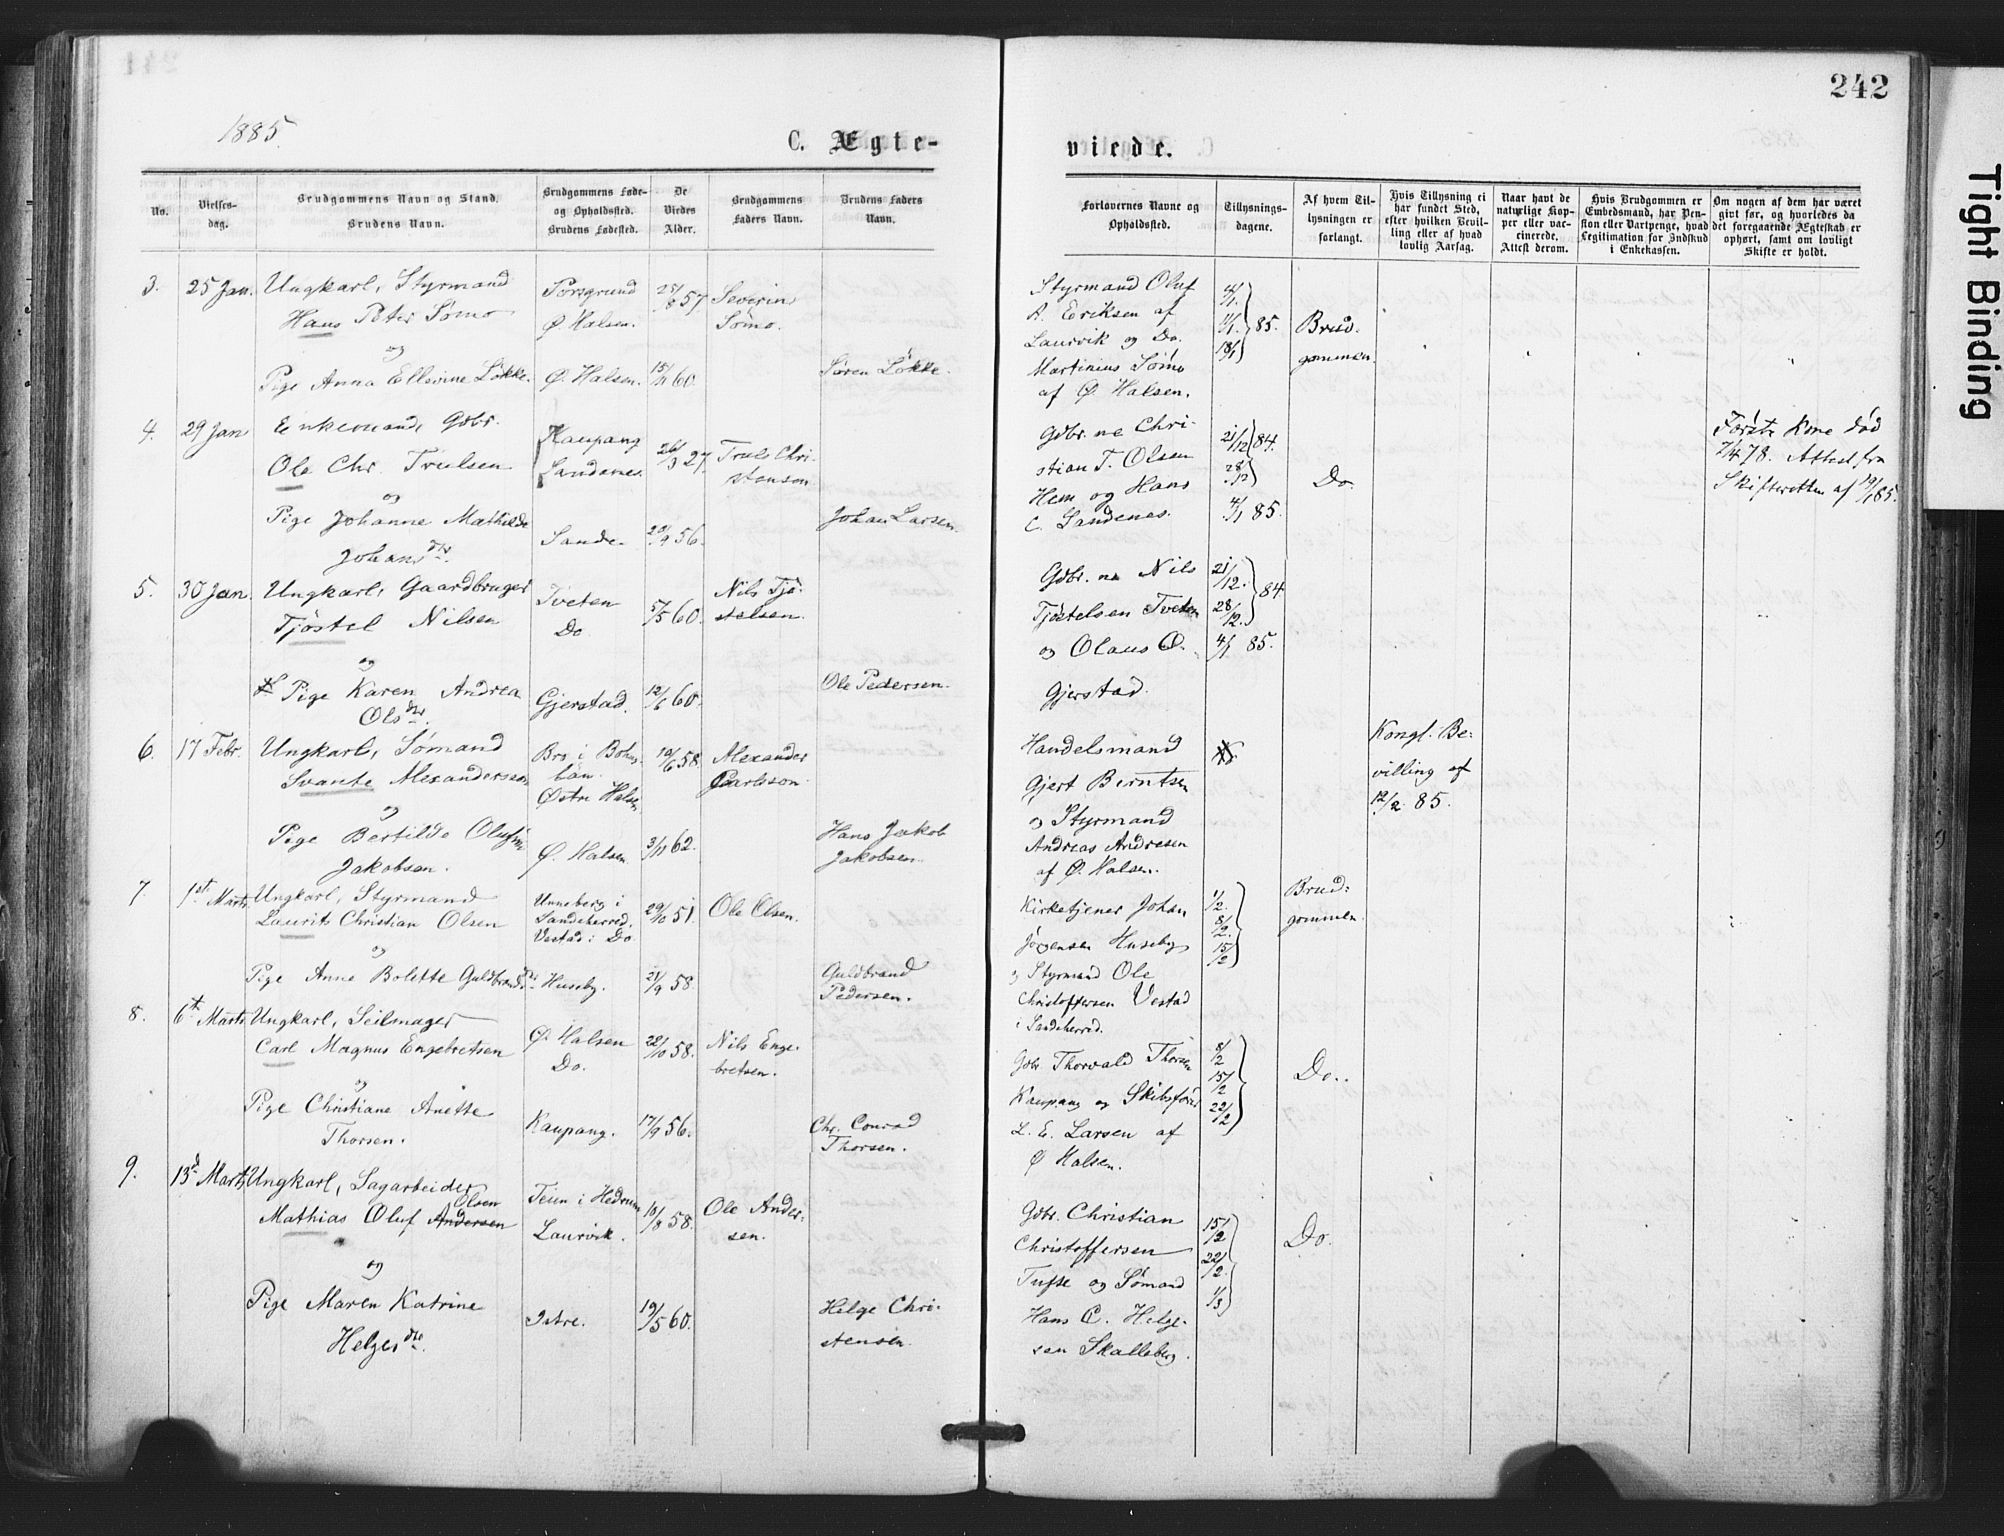 242
1885.
C. Ægte-
viede.
No.
Vielses-
dag.
Brudgommens Navn og Stand.
Brudens Navn.
Brudgommens Føde-
og Opholdsted.
Brudens Fødested.
De
Viedes
Alder.
Brudgommens
Faders Navn.
Brudens Faders
Navn.
Forlovernes Navne og
Opholdsted.
Tillysnings-
dagene.
Af hvem Til-
lysningen er
forlangt.
Hvis Tillysning ei
har fundet Sted,
efter hvilken Bevil-
ling eller af hvad
lovlig Aarsag.
Naar havt de
naturlige Kop-
per eller vac-
cinerede.
Attest derom.
Hvis Brudgommen er
Embedsmand, har Pen-
sion eller Vartpenge, hvad
Legitimation for Indskud
i Enkekassen.
Om nogen af dem har været
givt før, og hvorledes da
det foregaaende Ægteskab er
ophørt, samt om lovligt
Skifte er holdt.
3.
25 Jan.
Ungkarl, Styrmand
Hans Peter Sømo
og
Pige Anna Ellevine Løkke.
Porsgrund
Ø. Halsen.
Ø. Halsen.
25/8 57
15/11 60.
Severin
Sømo.
Søren Løkke.
Styrmand Oluf
A. Eriksen af
Laurvik og Do.
Martinius Sømo
af Ø. Halsen.
4/1.
11/1.
18/1
85.
Brud-
gommen.
4.
29 Jan
Enkemand, Gdbr.
Ole Chr. Trulsen
og
Pige Johanne Mathilde
Johansdtr.
Kaupang
Sandenes.
Sande.
26/3 27.
20/9 56.
Truls Chri-
stensen
Johan Larsen.
Gdbr.ne Chri-
stian T. Olsen
Hem og Hans
C. Sandenes.
21/12 84.
28/12
4/1 85.
Do.
Første Kone død
7/4 78. Attest fra
Skifteretten af 19/1 85.
5.
30 Jan.
Ungkarl, Gaardbruger
Tjøstel Nilsen
og
Pige Karen Andrea
Olsdtr.
Tveten
Do.
Gjerstad.
5/5 60.
12/6 60.
Nils Tjø-
stelsen.
Ole Pedersen.
Gdbr.ne Nils
Tjøstelsen Tveten
og Olaus O.
Gjerstad.
21/12.
28/12.
84
4/1 85.
6.
17 Febr.
Ungkarl, Sømand
Svante Alexandersson
og
Pige Bertilde Olufine
Jakobsen.
Bro i Bohus
län.
Østre Halsen
Ø. Halsen.
10/6 58.
3/11 62.
Alexander
Carlsson
Hans Jakob
Jakobsen.
Handelsmand
Gjert Berntsen
og Styrmand
Andreas Andresen
af Ø. Halsen.
Kongl. Be-
villing af
12/2. 85.
7.
1st Marts
Ungkarl, Styrmand
Laurits Christian Olsen
og
Pige Anne Bolette Guldbrandsdtr.
Unneberg i
Sandeherred.
Vestad i Do
Huseby.
29/10 51.
21/9 58.
Ole Olsen.
Guldbrand
Pedersen.
Kirketjener Johan
Jørgensen Huseby
og Styrmand Ole
Christoffersen Vestad
i Sandeherred.
1/2.
8/2.
15/2
Brud-
gommen.
8.
6t Marts
Ungkarl, Seilmager
Carl Magnus Engebretsen
og
Pige Christiane Anette
Thorsen.
Ø. Halsen
Do.
Kaupang.
22/10 58.
17/9 56.
Nils Enge-
bretsen.
Chr. Conrad
Thorsen.
Gdbr Thorvald Thorsen
Kaupang og Skibsfører
L. E. Larsen af
Ø Halsen.
8/2
15/2
22/2
Do.
9.
13d Marts
Ungkarl, Sagarbeider
Olsen
Mathias Oluf Andersen
og
Pige Maren Katrine
Helgesdtr.
Teien i Hedrum
Laurvik.
Istre.
10/8 58.
19/5 60.
Ole Ander-
sen.
Helge Chri-
stensen.
Gdbr. Christian
Christoffersen
Tufte og Sømand
Hans C. Helge-
sen Skalleberg.
15/2
22/2.
1/3
Do.
Tight Binding